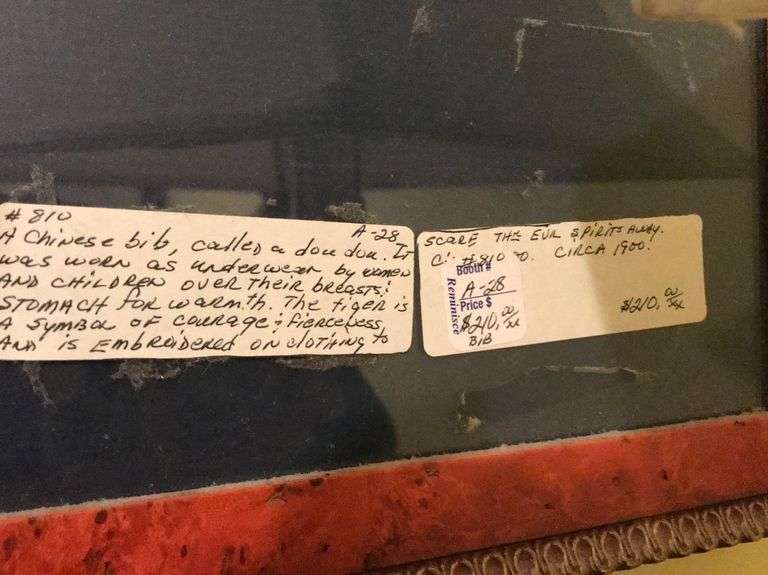 # 810
A-28
A Chinese bib, called a dou dou. It
was worn as underwear by women
AND CHILDREN OVER THEIR BREASTS &
STOMACH FOR WARMTH. THE TIGER IS
A SYMBOL OF COURAGE & FIERCENESS
AND IS EMBROIDERED ON CLOTHING TO
SCARE THE EVIL SPIRITS AWAY.
#810 CIRCA 1900.
Booth #
A-28
Reminisce
Price $
$210.00
BIB
$210.00